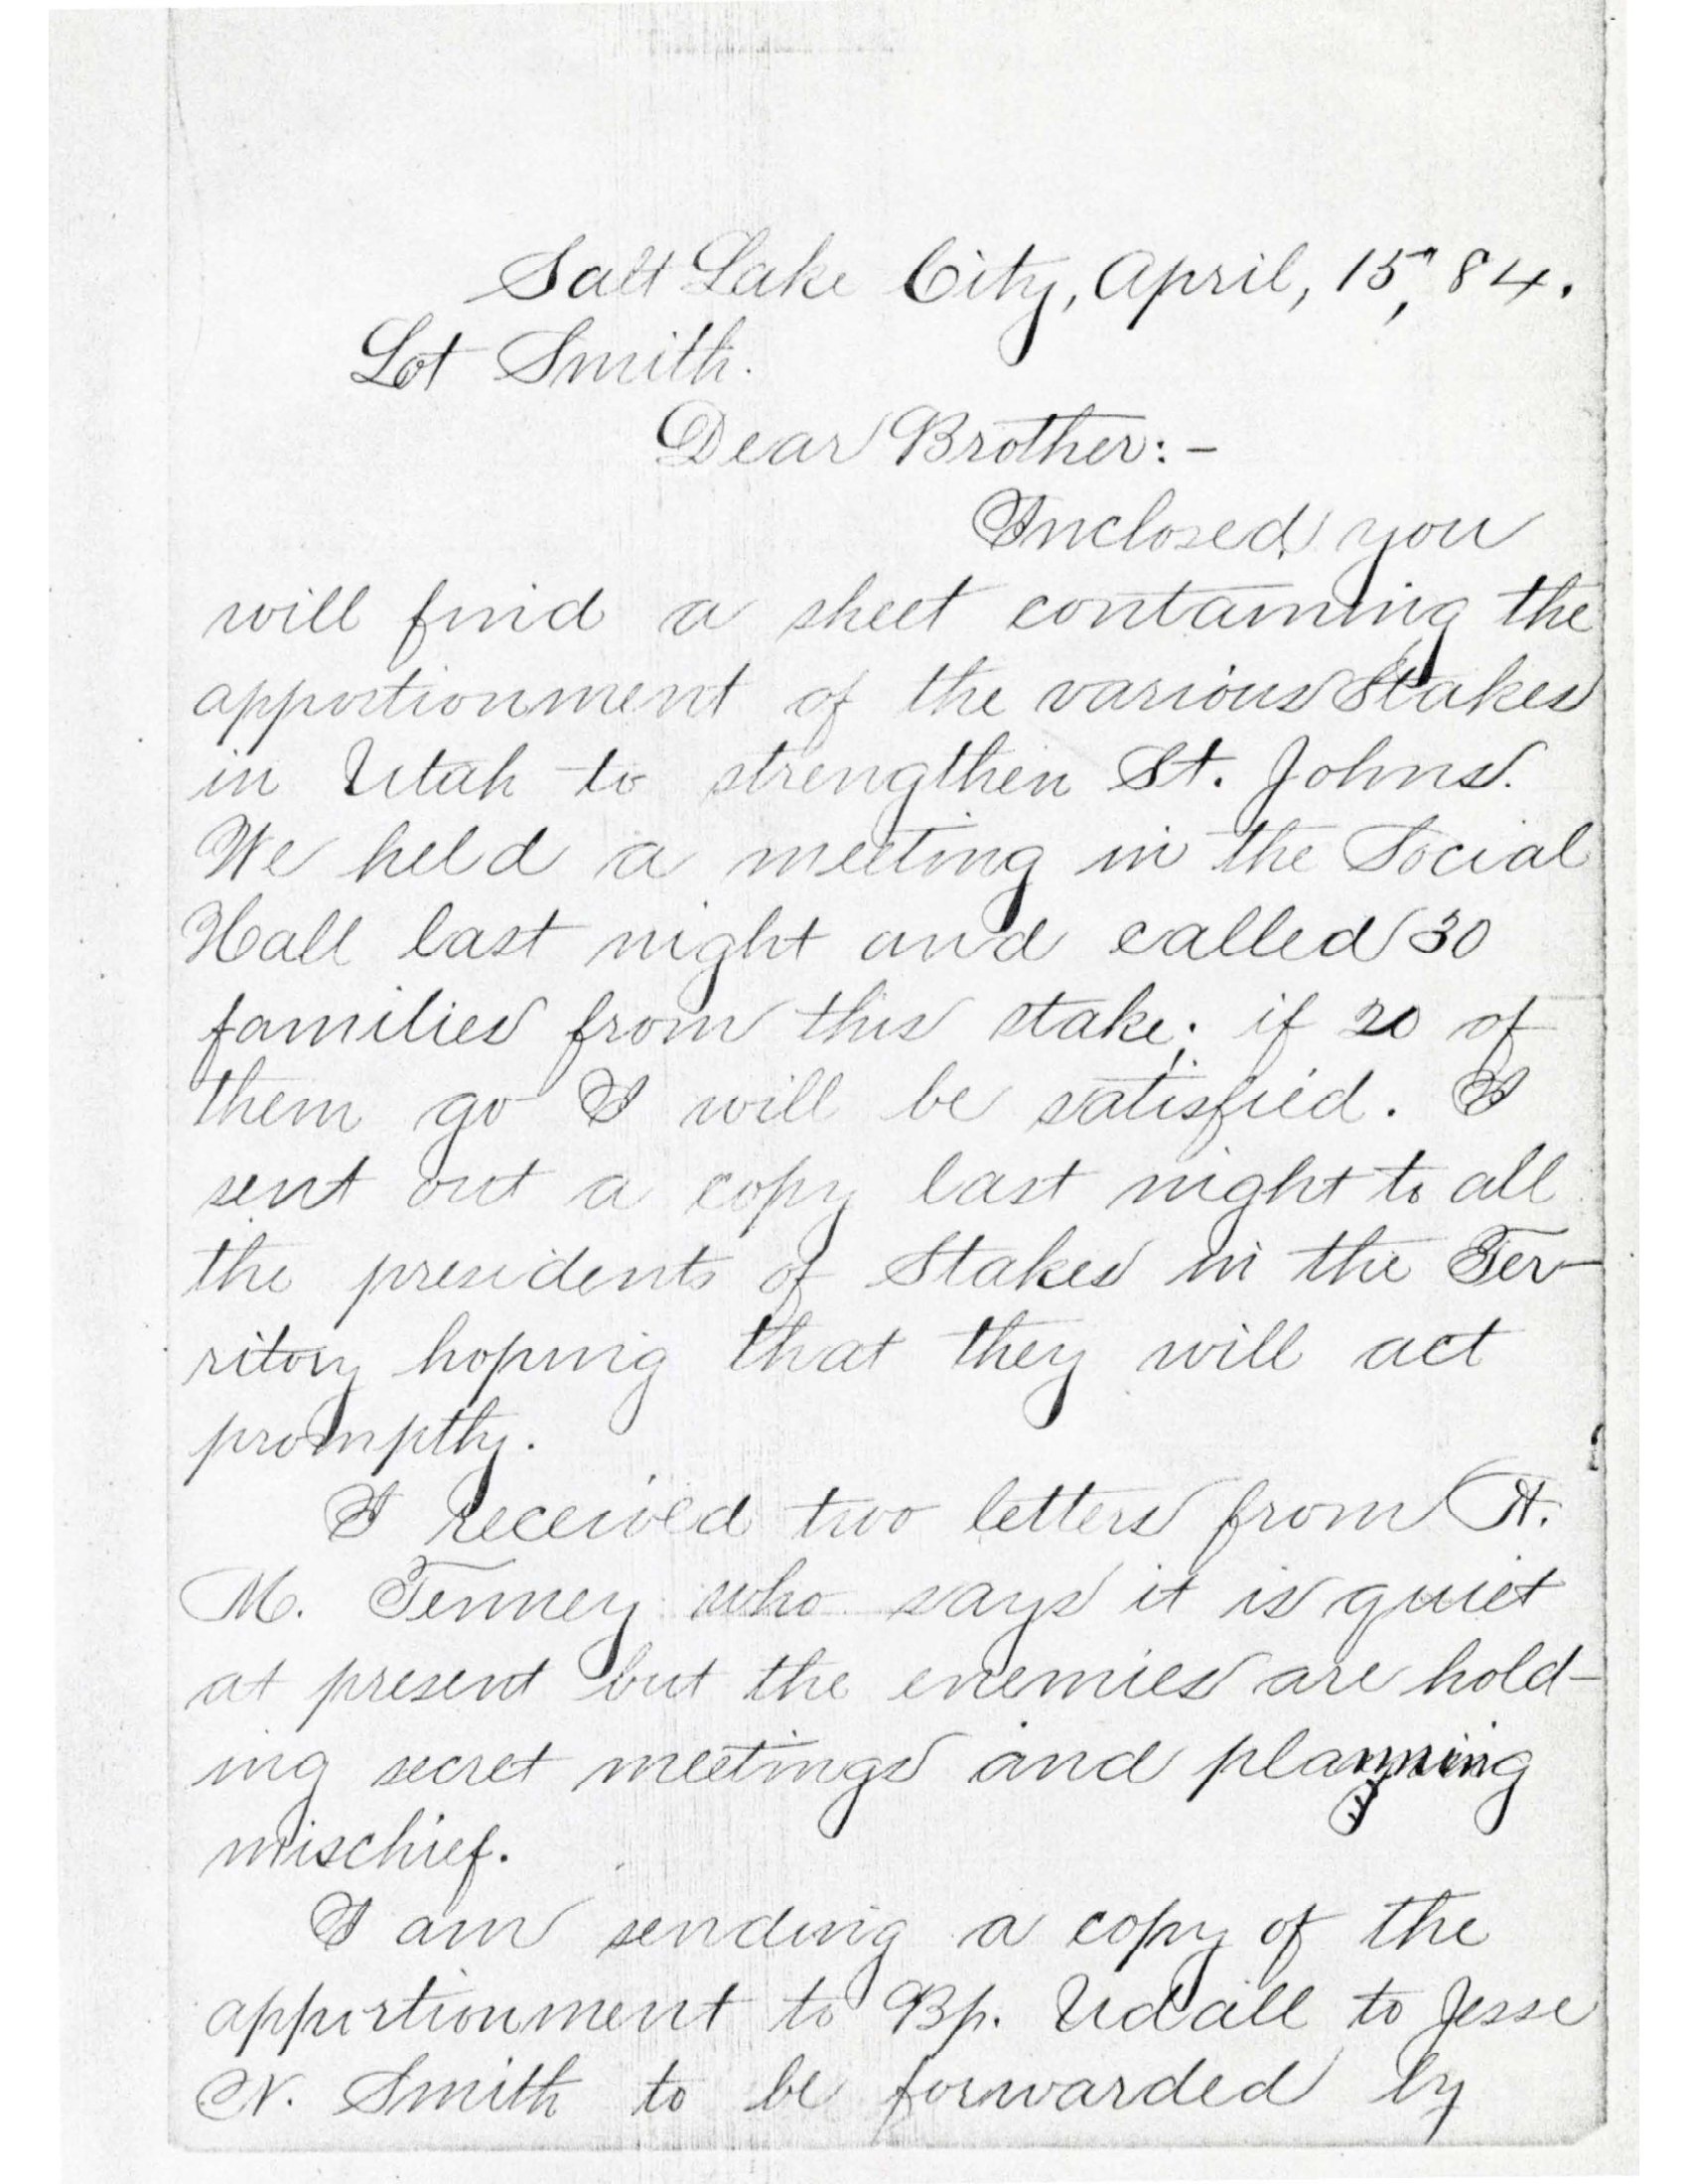 Salt Lake City, April, 15", 84.
Lot Smith.
Dear Brother:-
Inclosed you
will find a sheet containing the
apportionment of the various Stakes
in Utah to strengthen St. Johns.
We held a meeting in the Social
Hall last night and called 30
families from this stake; if 20 of
them go I will be satisfied. I
sent out a copy last night to all
the presidents of Stakes in the Ter-
ritory hoping that they will act
promptly.
I received two letters from A.
M. Tenney who says it is quiet
at present but the enemies are hold-
ing secret meetings and planning
mischief.
I am sending a copy of the
apportionment to Bp. Udall to Jesse
N. Smith to be forwarded by